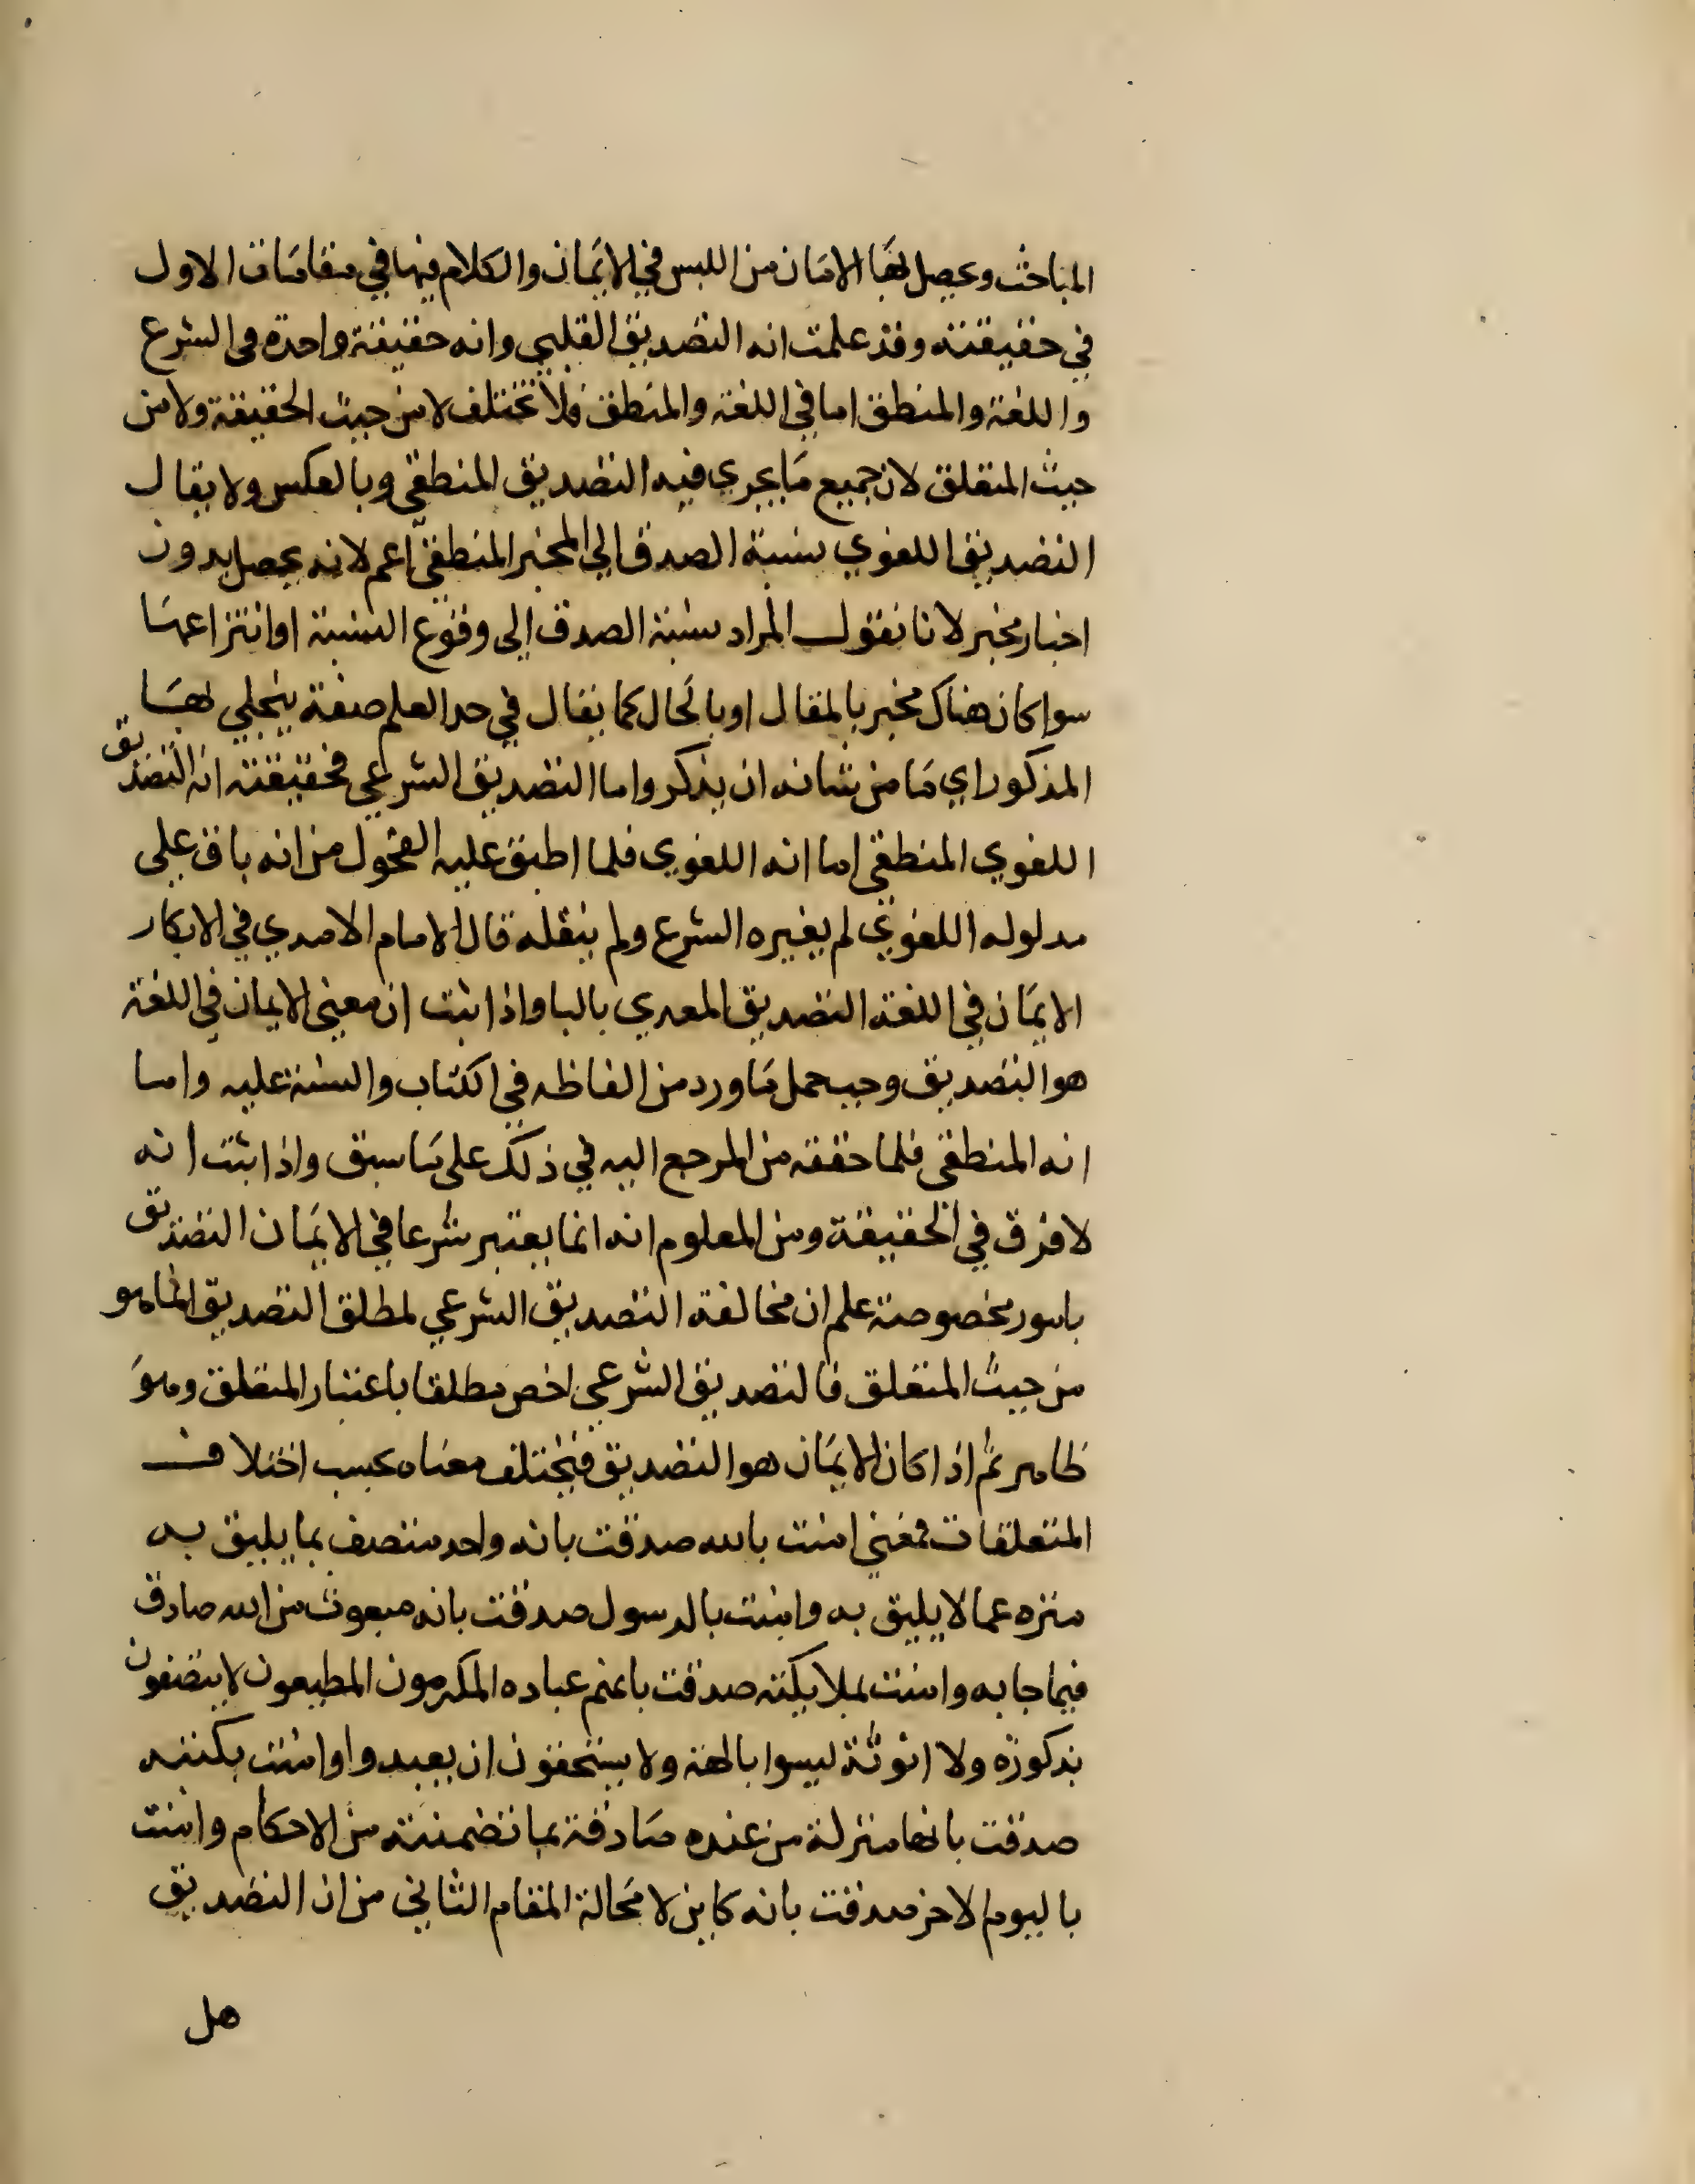 المباحث ويحصل بها الامان من اللبس في الايمان والكلام فيها في مقامات الاول
في حقيقته وقد علمت انه التصديق القلبي وانه حقيقة واحدة في الشرع
واللغة والمنطق اما في اللغة والمنطق فلا تختلف لا من حيث الحقيقة ولا من
حيث المتعلق لان جميع ما يجري فيه التصديق المنطقي وبالعكس ولا يقال
التصديق اللغوي نسبة الصدق الي المخبر المنطقي اعم لانه يحصل بدون
اخبار مخبر لانا نقول المراد نسبة الصدق الى وقوع النسبة او انتزاعها
سوا كان هناك مخبر بالمقال او بالحال كما يقال في حد العلم صفة يتجلي بها
المذكور اي ما من شانه ان يذكر واما التصديق الشرعي فحقيقته انه التصديق
اللغوي المنطقي اما انه اللغوي فلما اطبق عليه الفحول من انه باق علي
مدلوله اللغوي لم يغيره الشرع ولم ينقله قال الامام الامدي في الابكار
الايمان في اللغة التصديق المعدي بالبا واذا ثبت ان معني الايمان في اللغة
هو التصديق وجب حمل ما ورد من الفاظه في الكتاب والسنة عليه واما
انه المنطقي فلما حققه من المرجع اليه في ذلك على ما سبق واذا ثبت انه
لا فرق في الحقيقة ومن المعلوم انه انما يعتبر شرعا في الايمان التصديق
بامور مخصوصة علم ان مخالفة التصديق الشرعي لمطلق التصديق انما هو
من حيث المتعلق فالتصديق الشرعي اخص مطلقا باعتبار المتعلق وهو
ظاهر ثم اذا كان الايمان هو التصديق فيختلف معناه بحسب اختلاف
المتعلقات فمعني امنت بالله صدقت بانه واحد متصف بما يليق به
منزه عما لا يليق به وامنت بالرسول صدقت بانه مبعوث من الله صادق
فيما جا به وامنت بملايكته صدقت بانهم عباده المكرمون المطيعون لا يتصفون
بذكورة ولا انوثة ليسوا بالهة ولا يستحقون ان يعبدوا وامنت بكتبه
صدقت بانها منزلة من عنده صادقة بما تضمنته من الاحكام وامنت
باليوم الاخر صدقت بانه كاين لا محالة المقام الثاني من ان التصديق
هل